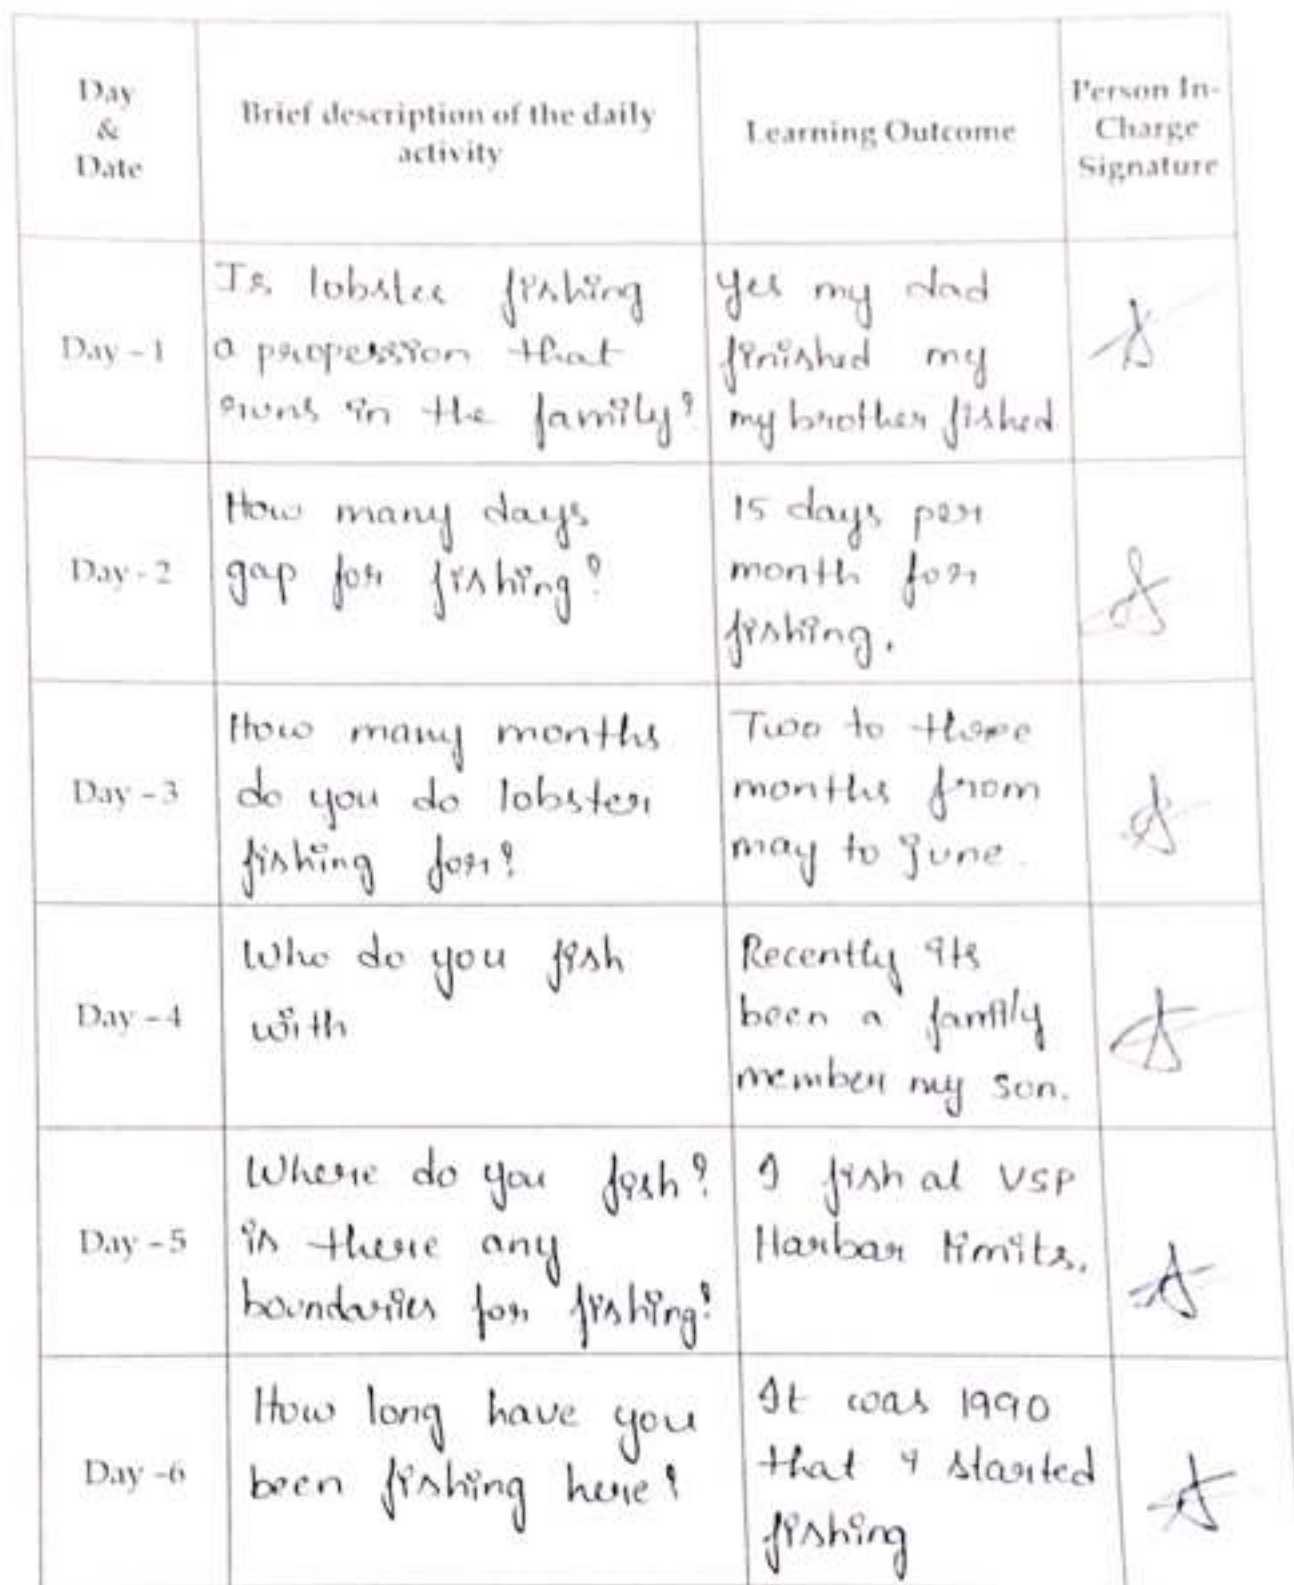 Day
&
Date
Brief description of the daily
activity
Learning Outcome
Person In-
Charge
Signature
Day - 1
Is lobster fishing
a propession that
runs in the family?
yes my dad
finished my
my brother fished
Day - 2
How many days
gap for fishing?
15 days per
month for
fishing.
Day - 3
How many months
do you do lobster
fishing for?
Two to three
months from
may to June.
Day - 4
Who do you fish
with
Recently its
been a family
member my son.
Day - 5
Where do you fish?
is there any
boundaries for fishing?
I fish at VSP
Harbar limits.
Day -6
How long have you
been fishing here?
It was 1990
that I started
fishing